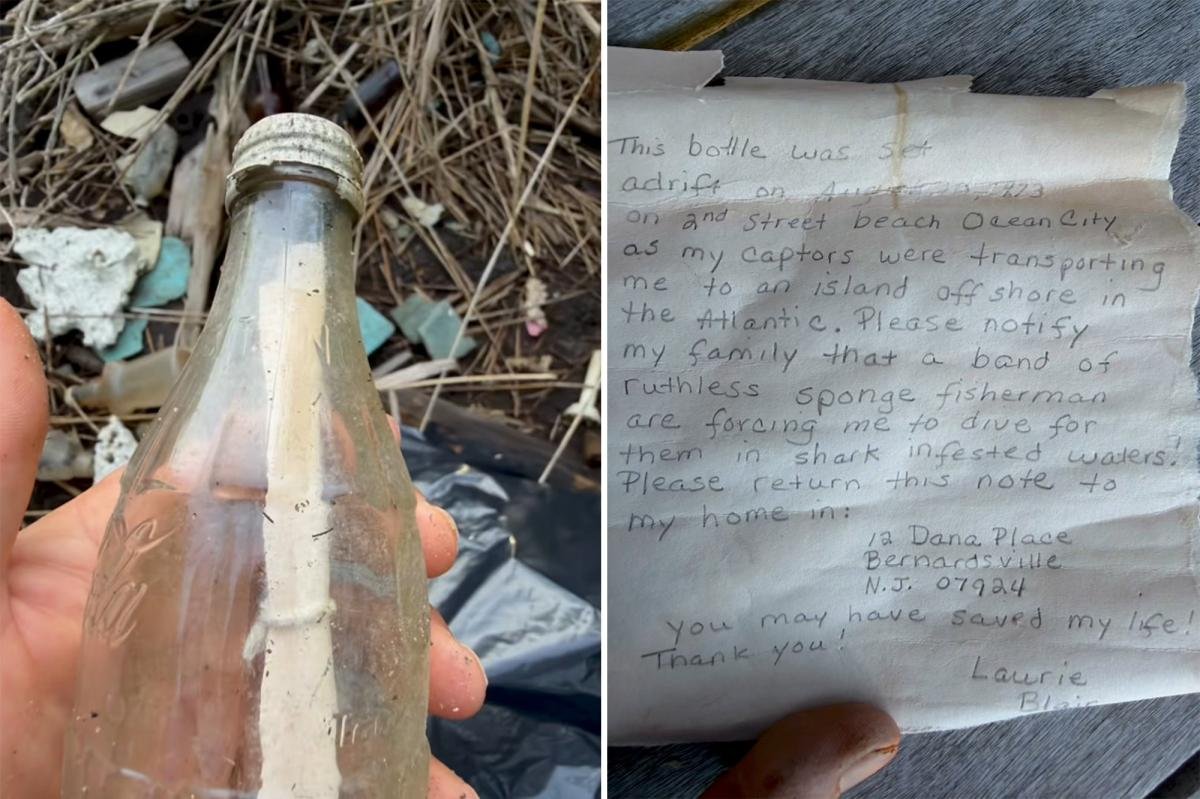 This bottle was set
adrift on August 1973
on 2nd Street beach Ocean City
as my captors were transporting
me to an island off shore in
the Atlantic. Please notify
my family that a band of
ruthless sponge fisherman
are forcing me to dive for
them in shark infested waters!
Please return this note to
my home in:
12 Dana Place
Bernardsville
N.J. 07924
you may have saved my life!
Thank you!
Laurie
Blair